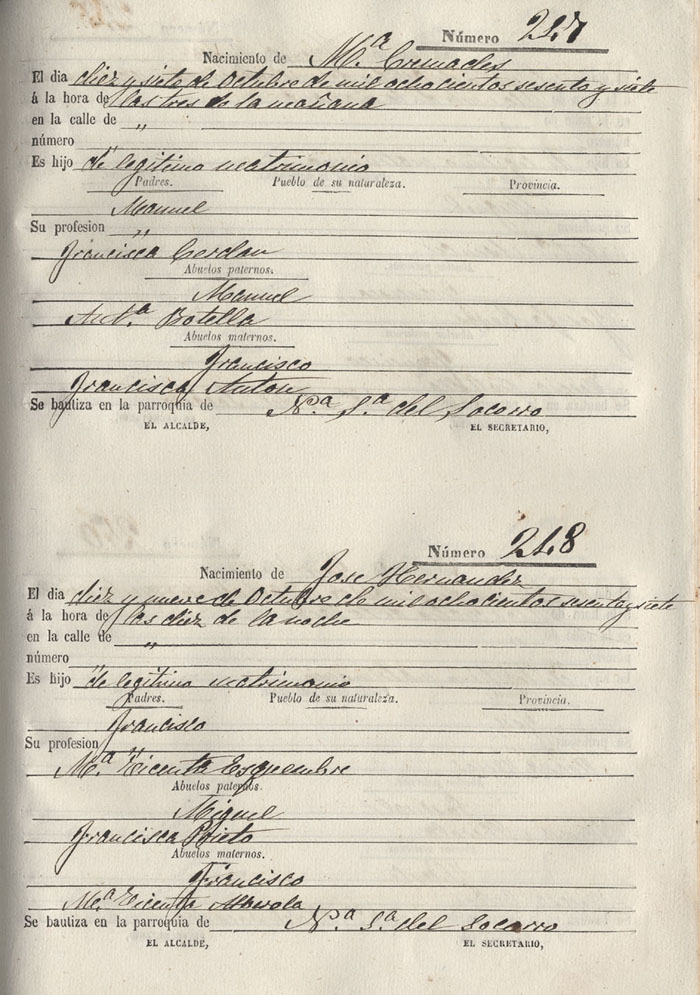 Número 247
Nacimiento de Mª Cremades
El dia diez y siete de Octubre de mil ochocientos sesenta y siete
á la hora de las tres de la mañana
en la calle de "
número "
Es hijo de legitimo matrimonio
Padres. Pueblo de su naturaleza. Provincia.
Manuel
Su profesion "
Francisca Cerdan
Abuelos paternos.
Manuel
Antª Botella
Abuelos maternos.
Francisco
Francisca Anton
Se bautiza en la parroquia de Nª Sª del Socorro
EL ALCALDE, EL SECRETARIO,
Número 248
Nacimiento de Jose Hernandez
El dia diez y nueve de Octubre de mil ochocientos sesenta y siete
á la hora de las diez de la noche
en la calle de "
número "
Es hijo de legitimo matrimonio
Padres. Pueblo de su naturaleza. Provincia.
Francisco
Su profesion "
Mª Vicenta Esquembre
Abuelos paternos.
Miguel
Francisca Prieto
Abuelos maternos.
Francisco
Mª Vicenta
Se bautiza en la parroquia de Nª Sª del Socorro
EL ALCALDE, EL SECRETARIO,